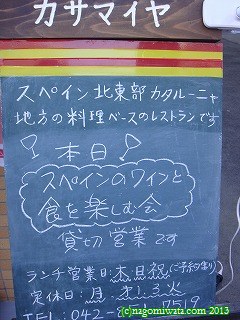 カサマイヤ
スペイン北東部カタルーニャ
地方の料理ベースのレストランです
本日
スペインのワインと
食を楽しむ会
貸切営業です
ランチ営業日:木.日.祝(ご予約有り)
定休日:月. 第1.3火
TEL:042- 7519
(c)nagomiwata.com 2013